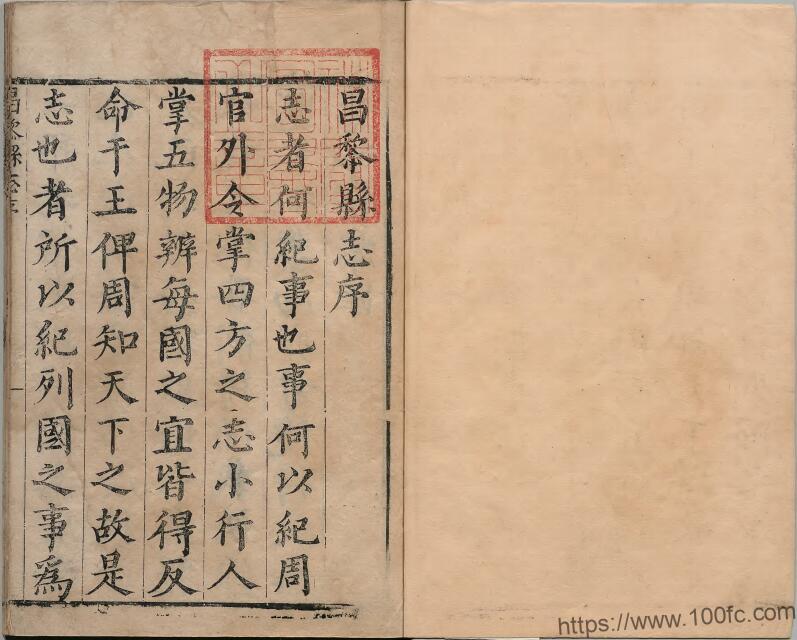 昌黎縣志序
志者何紀事也事何以紀周
官外令掌四方之志小行人
掌五物辨每國之宜皆得反
命于王俾周知天下之故是
志也者所以紀列國之事爲
https://www.100fc.com